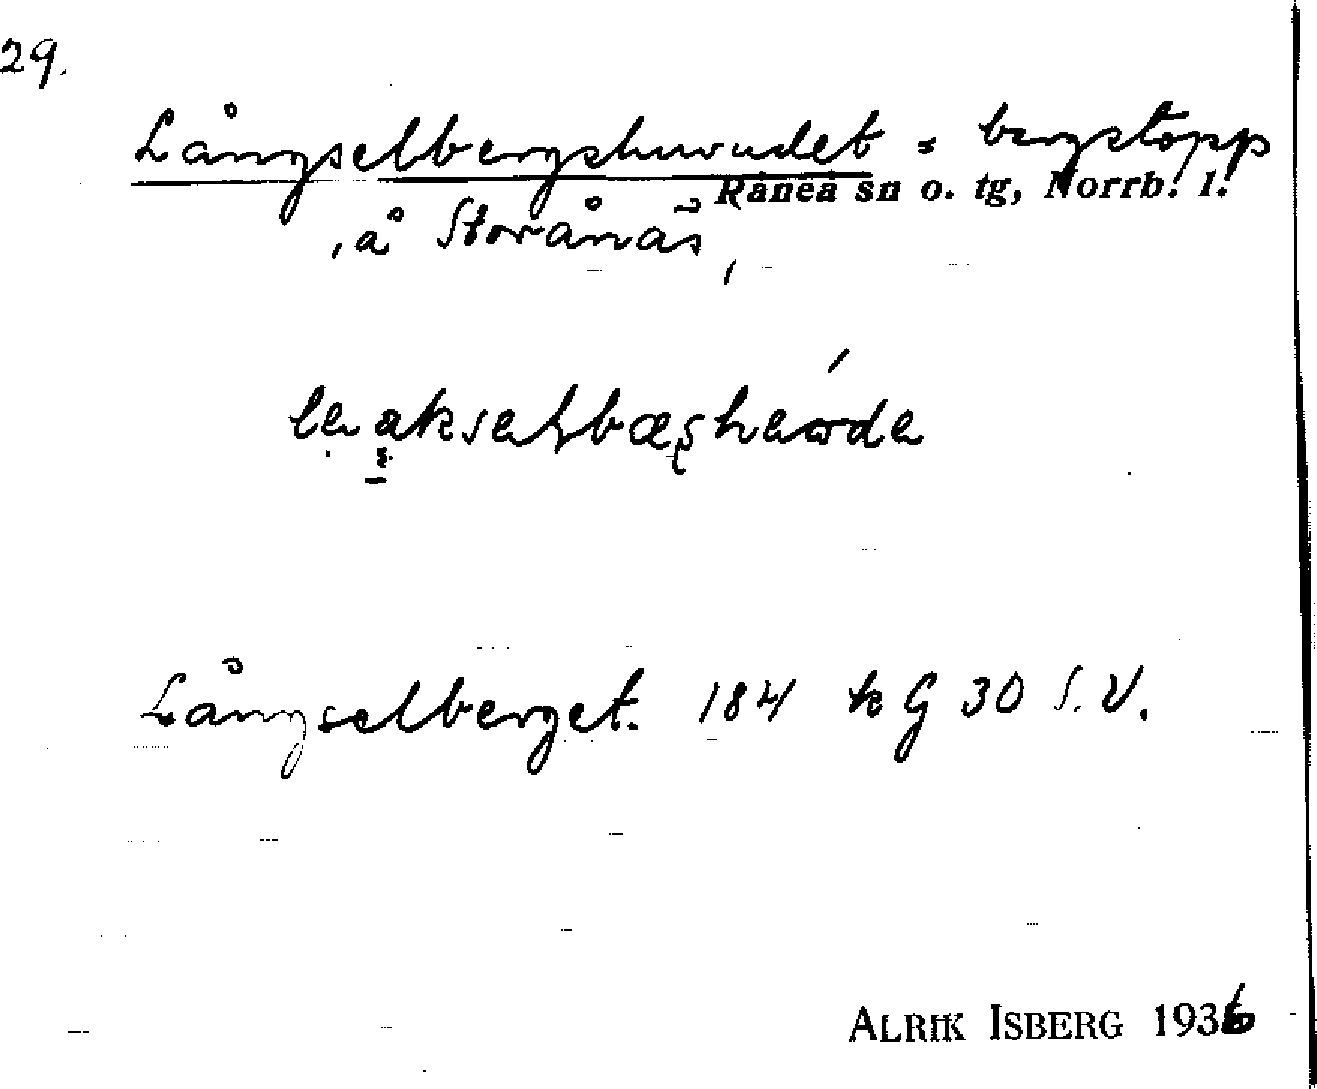 29.
Långselbergshuvudet = bergstopp
Råneå sn o. tg, Norrb. l.
, å Storånäs,
Långselberget. 184 k G 30 S.V.
ALRIK ISBERG 1936